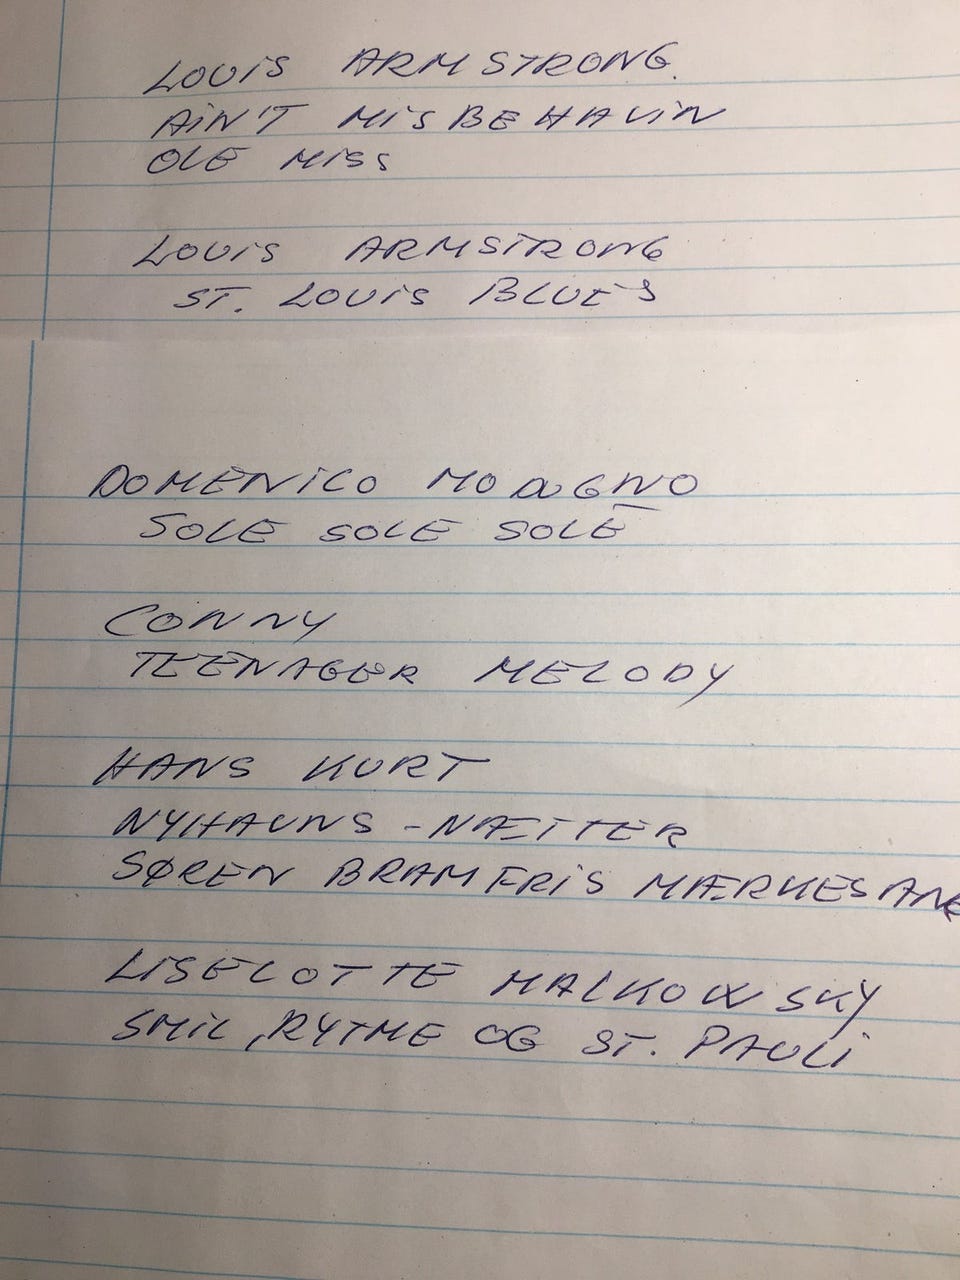 LOUIS ARMSTRONG.
AIN'T MISBEHAVIN
OLE MISS
LOUIS ARMSTRONG
ST. LOUIS BLUES
DOMENICO
SOLE SOLE SOLE
CONNY
TEENAGER MELODY
HANS KURT
NYHAVNS-NÆTTER
SØREN BRAMFRIS MÆRKESANG
LISELOTTE MALKOWSKY
SMIL, RYTME OG ST. PAULI